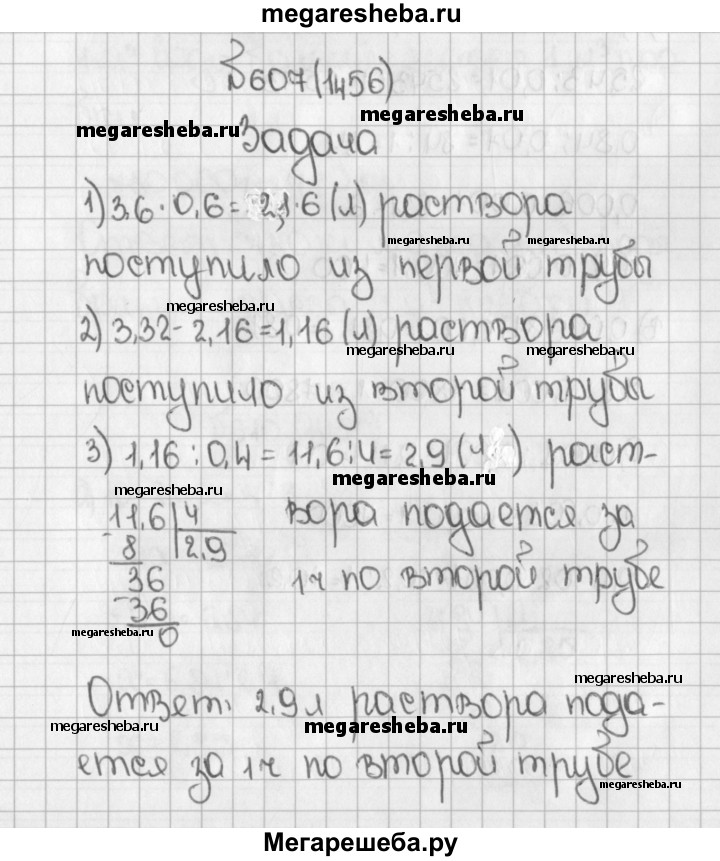 megaresheba.ru
№607(1456)
megaresheba.ru
megaresheba.ru
Задача
1) 3,6 · 0,6 = 2,1·6 (л) раствора
megaresheba.ru megaresheba.ru
поступило из первой трубы
megaresheba.ru
2) 3,32 - 2,16 = 1,16 (л) раствора
megaresheba.ru megaresheba.ru
поступило из второй трубы
3) 1,16 : 0,4 = 11,6 : 4 = 2,9 (ч ) раст-
megaresheba.ru
megaresheba.ru
11,6 | 4 вора подается за
- 8 2,9
36 1ч по второй трубе
- 36
megaresheba.ru 0
megaresheba.ru
Ответ: 2,9л раствора пода-
megaresheba.ru megaresheba.ru megaresheba.ru
ется за 1ч по второй трубе
megaresheba.ru
Мегарешеба.ру